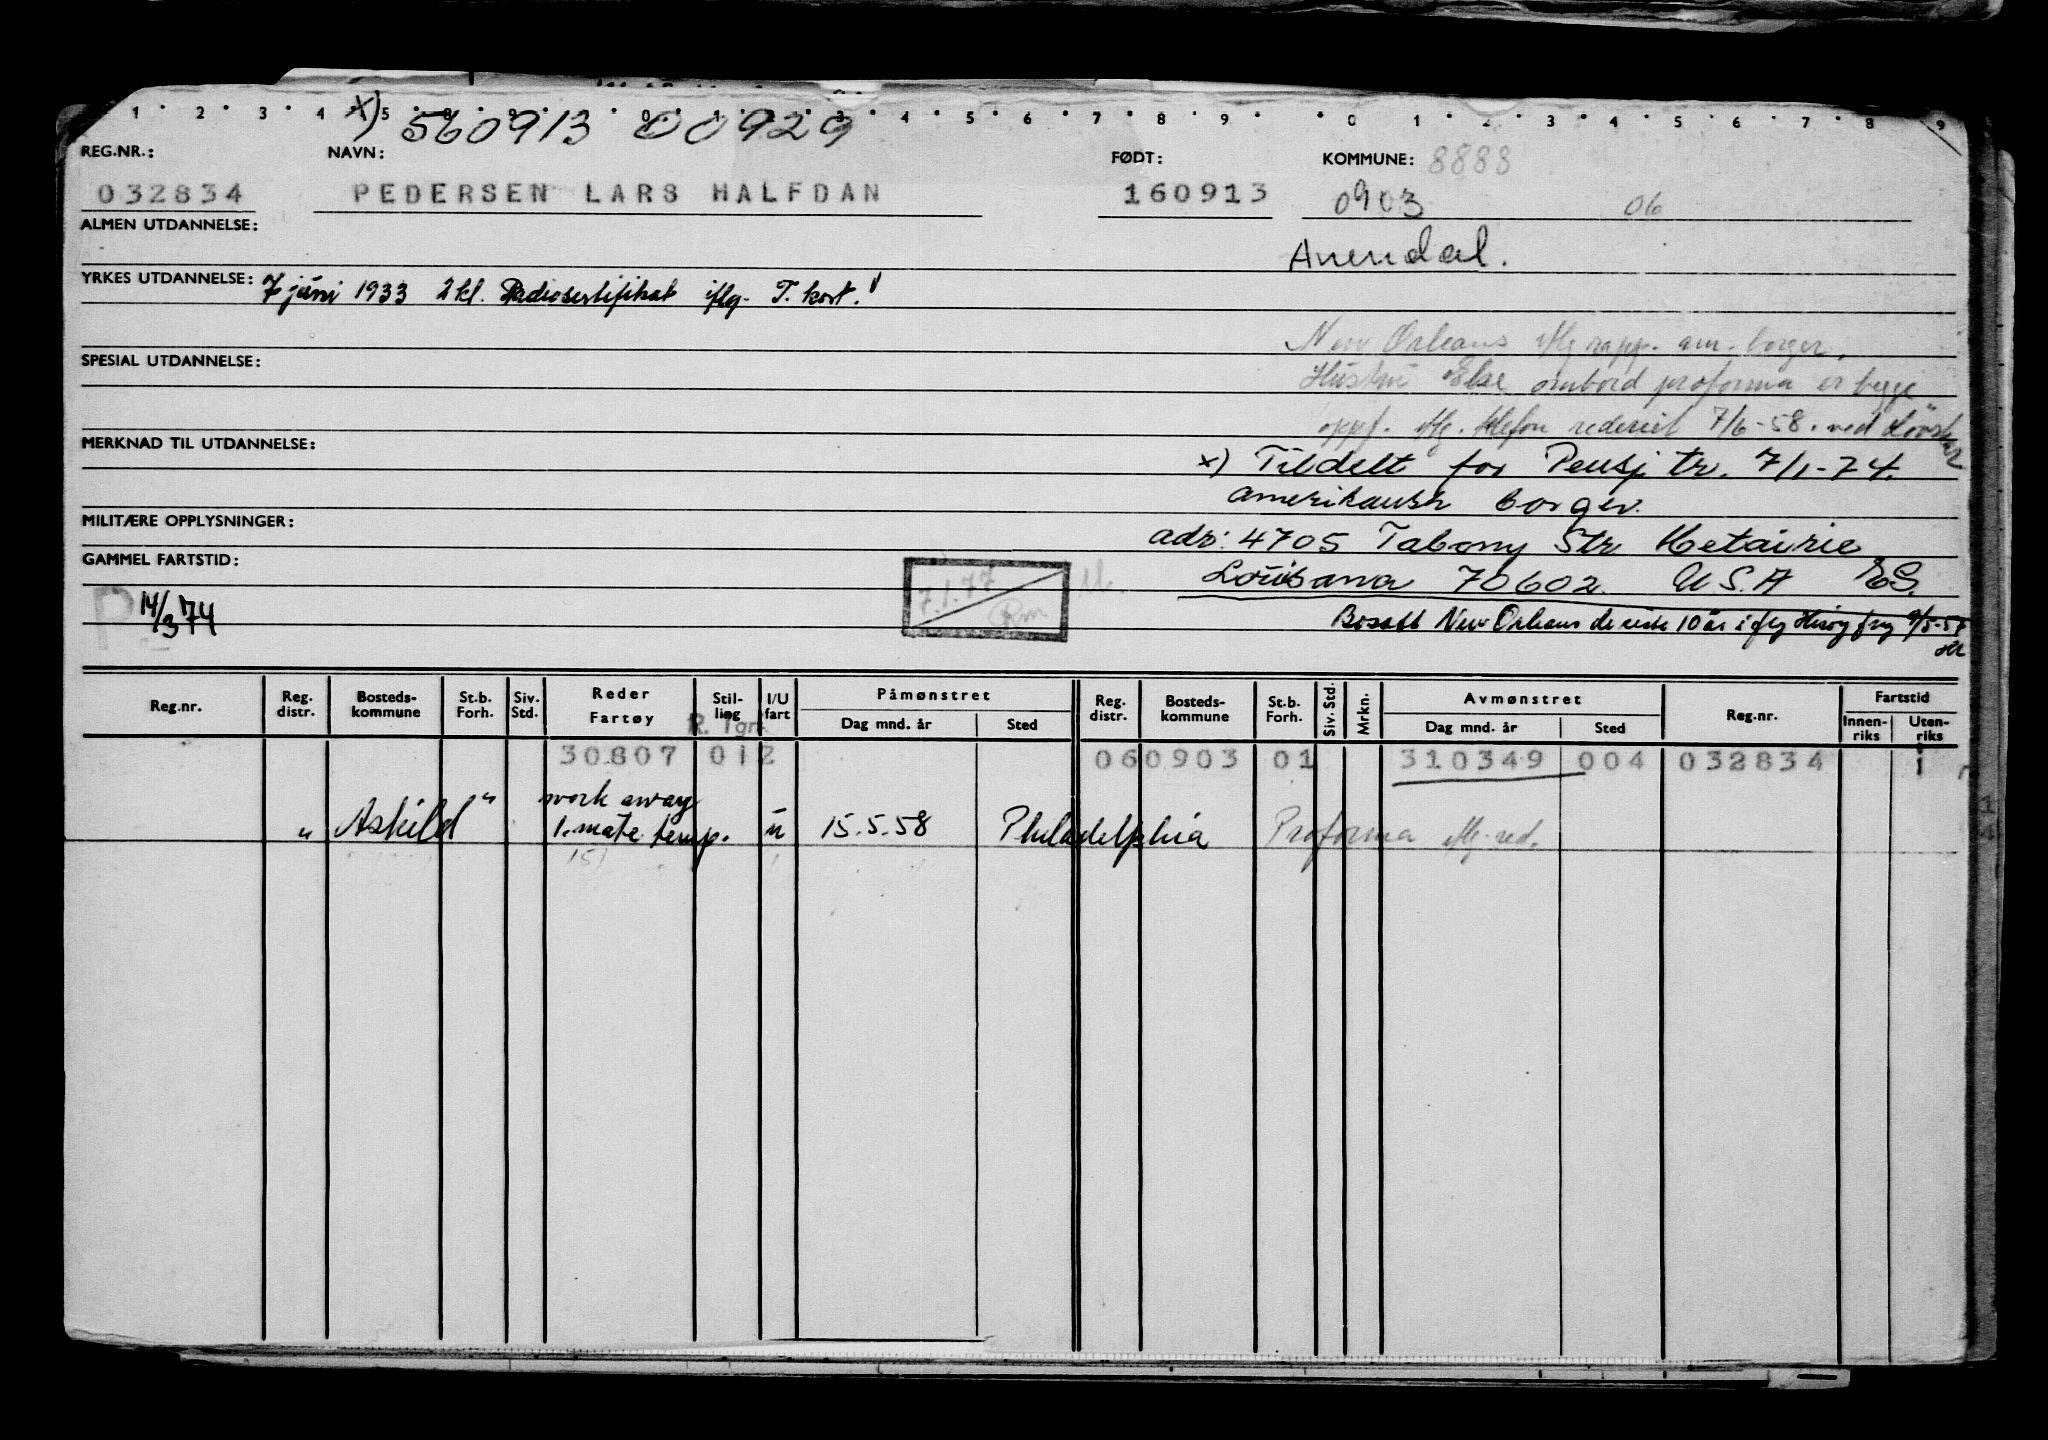 1 2 3 4 5 8 9 0 1 2 3 4 5 6 7 8 9 0 1 2 3 4 5 6 7 8 9
x) 560913 00929
REG.NR.: NAVN: FØDT: KOMMUNE: 8888
032834 PEDERSEN LARS HALFDAN 160913 0903 06
ALMEN UTDANNELSE:
Arendal.
YRKES UTDANNELSE: 7 juni 1933 2 kl. Radiosertifikat iflg. T. kort.
New Orleans iflg rapp. am. borger.
SPESIAL UTDANNELSE:
Hustru Else ombord proforma er begge
oppf. iflg. telefon rederiet 7/6-58. ved
MERKNAD TIL UTDANNELSE:
x) Tildelt for Pensj tr. 7/1-74.
amerikansk borger.
MILITÆRE OPPLYSNINGER:
adr: 4705 Tabony Str Metairie
GAMMEL FARTSTID:
Louisana 70602 U.S.A ES.
7.1.77 Rm
P 14/3 74
Bosatt New Orleans de siste 10 år iflg Hirøy
Reg.nr. Reg. distr. Bosteds-kommune St.b. Forh. Siv. Std. Reder Fartøy Stil-ling I/U fart Påmønstret Dag mnd. år Sted Reg. distr. Bosteds-kommune St.b. Forh. Siv. Std. Mrkn. Avmønstret Dag mnd. år Sted Reg.nr. Fartstid Innen-riks Uten-riks
R. Tgr
30807 012 060903 01 310349 004 032834 1
work away
"Askild" 1. mate temp. u 15.5.58 Philadelphia Proforma iflg. red.